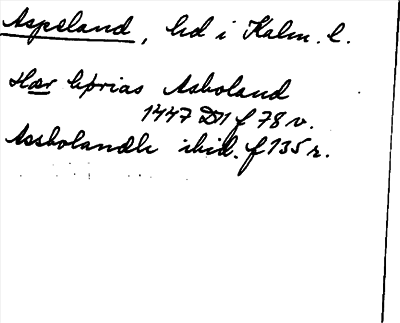 Aspeland, hd i Kalm. l.
Hær hþrias Asboland
1447 D11 f 78 v.
Assbolandh ibid. f 135 r.